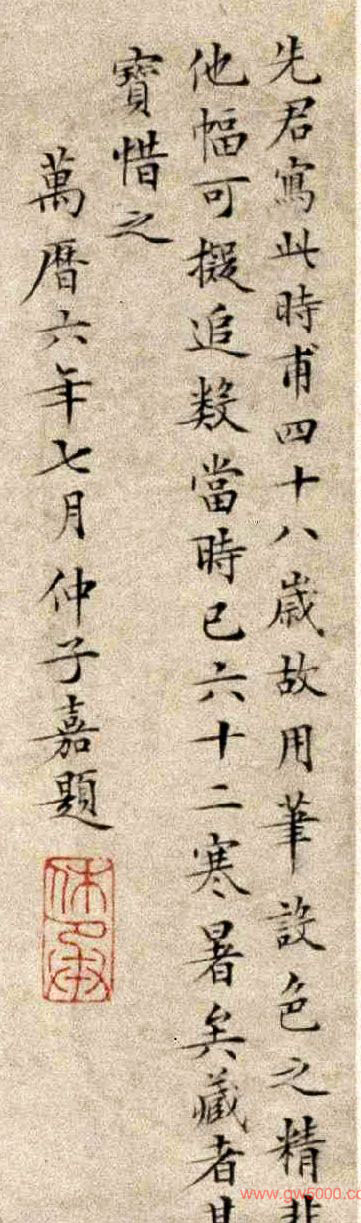 先君寫此時甫四十八歲故用筆設色之精非
他幅可擬追數當時已六十二寒暑矣藏者其
寶惜之
萬曆六年七月仲子嘉題
休承
www.gw5000.co